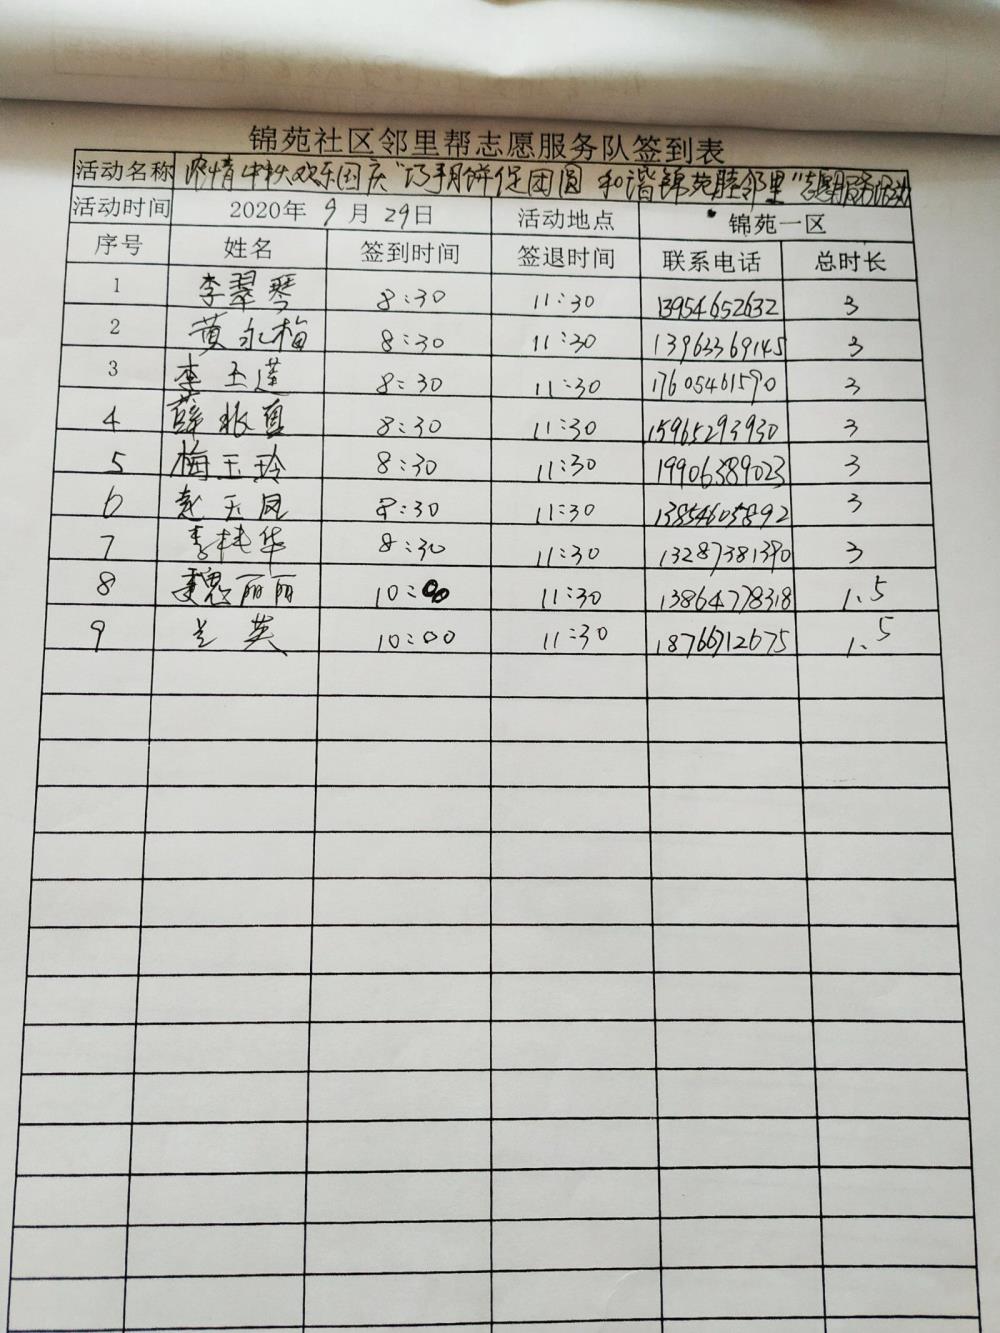 锦苑社区邻里帮志愿服务队签到表
活动名称 浓情中秋欢乐国庆"巧手月饼促团圆 和谐锦苑睦邻里"志愿服务活动
活动时间 2020年 9 月 29日 活动地点 锦苑一区
序号 姓名 签到时间 签退时间 联系电话 总时长
1 李翠琴 8:30 11:30 13954652632 3
2 黄永梅 8:30 11:30 13963369145 3
3 李玉莲 8:30 11:30 17605461590 3
4 薛振直 8:30 11:30 15965293930 3
5 梅玉玲 8:30 11:30 19906389023 3
6 赵玉凤 8:30 11:30 13854605892 3
7 李桂华 8:30 11:30 13287381390 3
8 魏丽丽 10:00 11:30 13864778318 1.5
9 兰英 10:00 11:30 18766712675 1.5